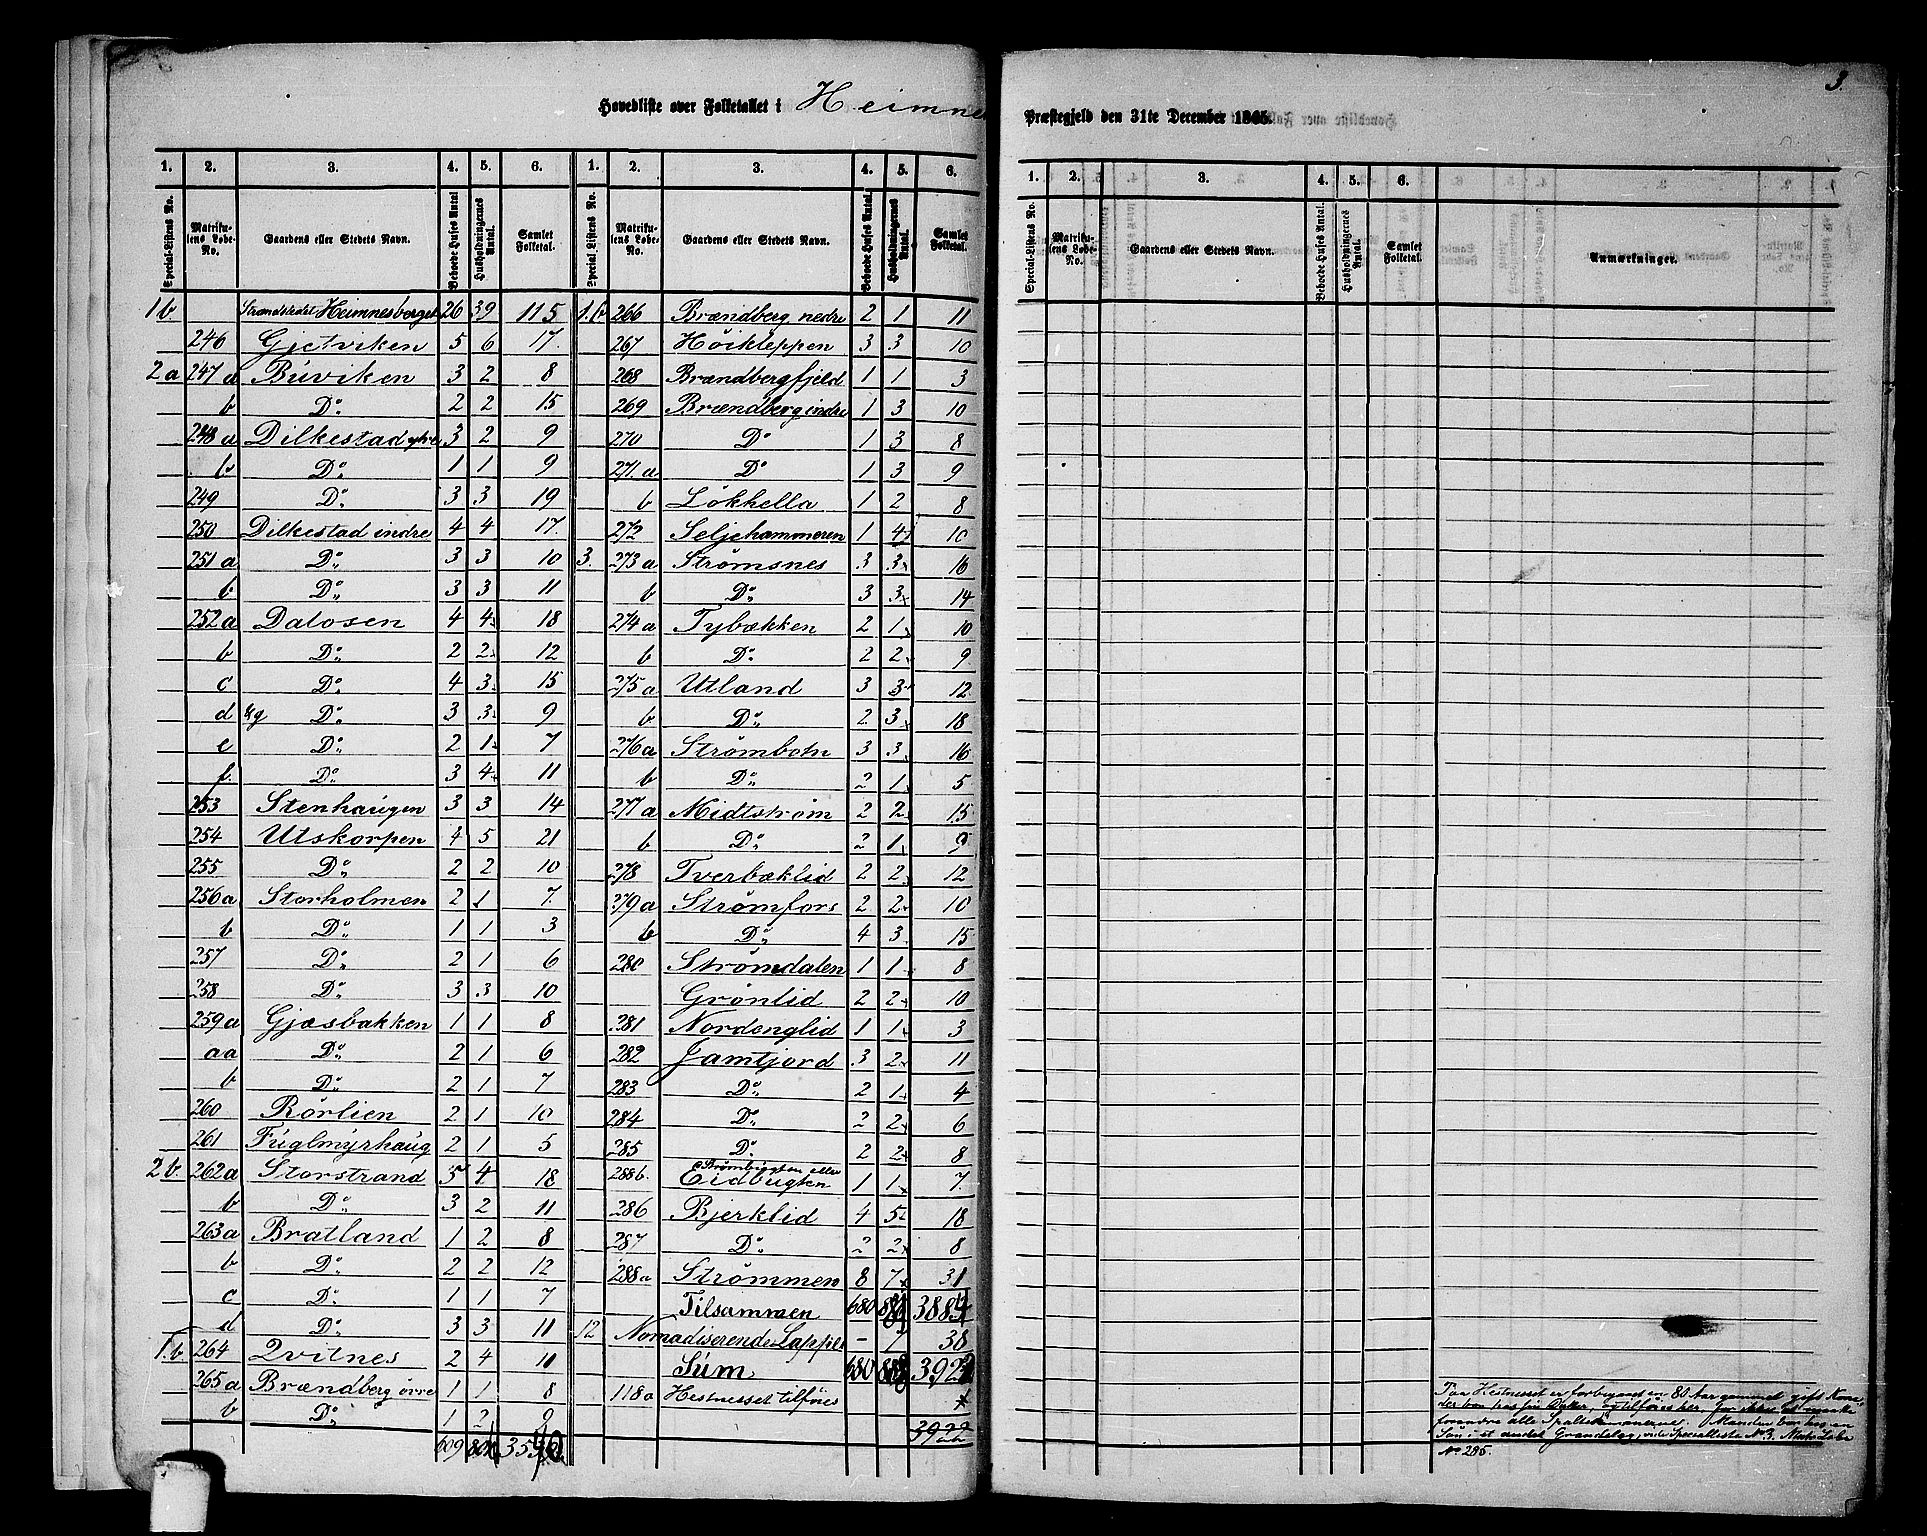 3.
Hovedliste over Folketallet i Heimnes Præstegjeld den 31te December 1865.
1. 2. 3. 4. 5. 6. 1. 2. 3. 4. 5. 6.
Special-Listens No. Matrikulens Løbe-No. Gaardens eller Stedets Navn. Beboede Huses Antal Husholdningernes Antal. Samlet Folketal. Special Listens No. Matrikulens Løbe-No. Gaardens eller Stedets Navn. Beboede Huses Antal. Husholdningernes Antal. Samlet Folketal.
1b. Strandstedet Heimnesberget 26 39 115
246 Gjetviken 5 6 17.
2a 247a Buviken 3 2 8
b Do. 2 2 15
248a Dilkestad ytre 3 2 9
b Do. 1 1 9
249 Do. 3 3 19
250 Dilkestad indre 4 4 17.
251a Do. 3 3 10
b Do. 3 3 11
252a Dalosen 4 4 18
b Do. 2 2 12
c Do. 4 3 15
d &g Do. 3 3 9
e Do. 2 1 7
f. Do. 3 4 11
253 Stenhaugen 3 3 14
254 Utskorpen 4 5 21
255 Do. 2 2 10
256a Storholmen 2 1 7.
b Do. 1 1 3
257 Do. 2 1 6
258 Do. 3 3 10
259a Gjæsbakken 1 1 8
aa Do. 2 1 6
b Do. 2 1 7
260 Rörlien 2 1 10
261 Fuglmyrhaug 2 1 5
2b. 262a Storstrand 5 4 18
b Do. 3 2 11
263a Bratland 1 2 8
b Do. 2 2 12
c Do. 1 1 7
d Do. 3 3 11
1.b. 264 Qvitnes 2 4 10
265a Brændberg övre 1 1 8
b Do. 1 2 9
609
1.b 266 Brændberg nedre 2 1 11
267 Höikleppen 3 3 10
268 Brændbergfjeld 1 1 3
269 Brændberg indre 1 3 10
270 Do 1 3 8
271.a Do 1 3 9
b Lökhella 1 2 8
272 Seljehammeren 1 4 10
3. 273a Strømsnes 3 3 16
b Do. 3 3 14
274a Tybækken 2 1 10
b Do. 2 2 9
275a Utland 3 3 12
b Do. 2 3 18
276a Strømbotn 3 3 16
b Do. 2 1 5
277a Midtstrøm 2 2 15
b Do. 2 1 9
278 Tverbæklid 2 2 12
279a Strømfors 2 2 10
b Do. 4 3 15
280 Strømdalen 1 1 8
Grönlid 2 2 10
281 Nordenglid 1 1 3
282 Jamtjord 3 2 11
283 Do. 2 1 4
284 Do. 2 2 6
285 Do. 2 2 8
288b. Strømbugten eller Eidbugten 1 1 7.
286 Bjerklid 4 5 18
287 Do. 2 2 8
288a Strömmen 8 7 31
Tilsammen 680 3884
12 Nomadiserende Lapper – 7 38
Sum 680 3922
118a Hestnesset tilföies
3922
1. 2. 3. 4. 5. 6.
Special-Listens No. Matrikulens Løbe-No. Gaardens eller Stedets Navn. Beboede Huses Antal. Husholdningernes Antal. Samlet Folketal Anmærkninger.
Paa Hestnesset er forbigaaet en 80 Aar gammel gift Kone
der bor hos sin Datter, og tilföies her.
forandre alle Spaltesummerne. Manden bor hos en
Sön i et andet Grændelag, vide Specialliste No 3. Matr. Løbe
No. 285.